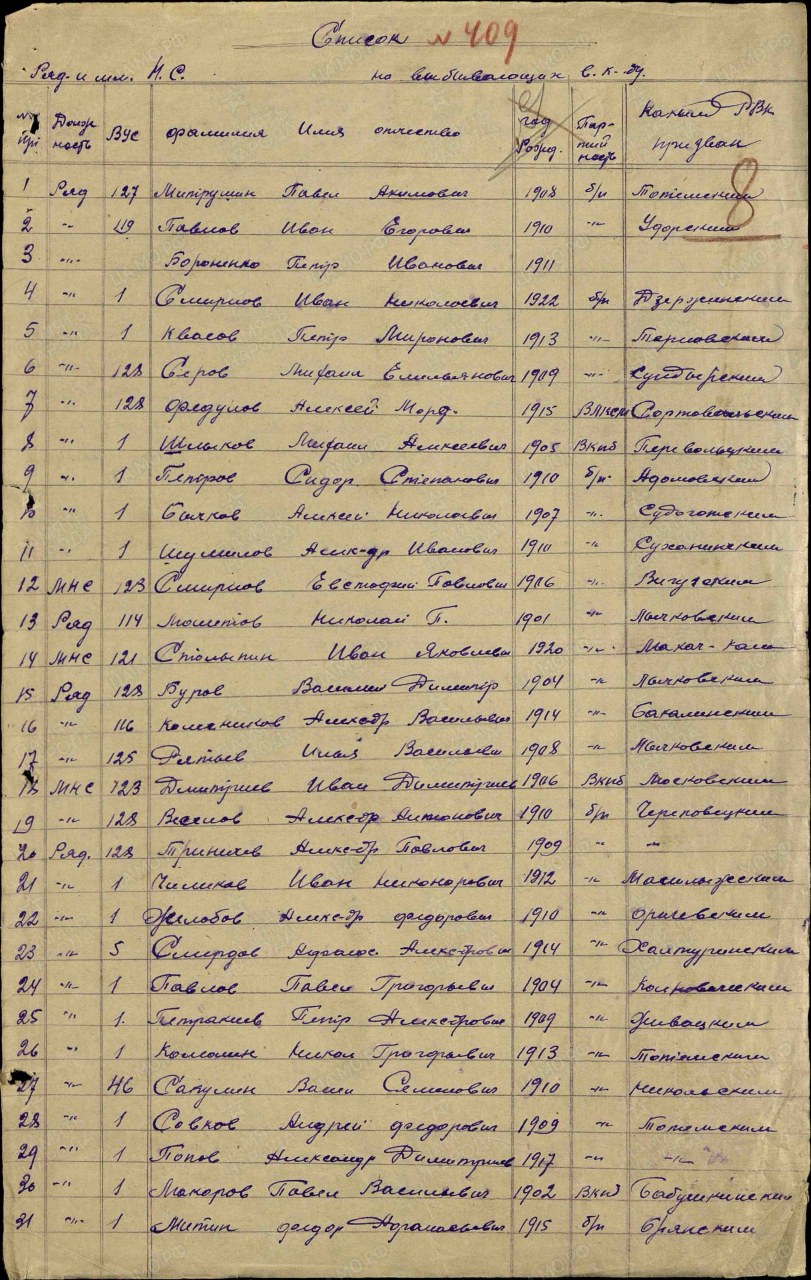 Список № 409
Ряд и мл. Н.С. на выбывающих в. к-ду.
№№ п/п Долж ность ВУС фамилия Имя отчество год Рожд. Пар- тий ность Каким РВК призван
8
1 Ряд 127 Митрушин Павел Акимович 1908 б/п Тотемским
2 -"- 119 Павлов Иван Егорович 1910 -"- Удорским
3 -"- Бороненко Петр Иванович 1911
4 -"- 1 Смирнов Иван Николаевич 1922 б/п Дзержинским
5 -"- 1 Квасов Петр Миронович 1913 -"- Терновским
6 -"- 128 Серов Михаил Емельянович 1909 -"-
7 -"- 128 Федулов Алексей Морд. 1915 ВЛКСМ
8 -"- 1 Шлыков Михаил Алексеевич 1905 ВКпб Перевольцким
9 -"- 1 Петров Сидор Степанович 1910 б/п Адамовским
10 -"- 1 Бычков Алексей Николаевич 1907 -"- Судогодским
11 -"- 1 Шумилов Алек-др Иванович 1910 -"- Суханичским
12 МНС 123 Смирнов Евстафий Павлович 1906 -"- Вичугским
13 Ряд 114 Николай П. 1901 -"- Лычковским
14 МНС 121 Столыпин Иван Яковлеви 1920 -"- Махач-кала
15 Ряд 128 Буров Василий Димитр 1904 -"- Лычковским
16 -"- 116 Колесников Алексдр Васильевич 1914 -"- Бакалинским
17 -"- 125 Илья Васильеви 1908 -"- Лычковским
18 МНС 123 Дмитриев Иван Димитриев 1906 ВКпб Московским
19 -"- 128 Веселов Алексдр Антонович 1910 б/п Череповецким
20 Ряд. 128 Триничев Алек-др Павлович 1909 -"- -"-
21 -"- 1 Чиликов Иван Никонорович 1912 -"-
22 -"- 1 Жлобов Алек-др Федорович 1910 -"- Оричевским
23 -"- 5 Смердов Афанас Алекстрович 1914 -"- Халтуринским
24 -"- 1 Павлов Павел Григорьеви 1904 -"-
25 -"- 1. Петракиев Петр Алекстрович 1909 -"-
26 -"- 1 Комолин Никол Григорьевич 1913 -"- Тотемским
27 -"- 46 Сакулин Васили Семенович 1910 -"- Никольским
28 -"- 1 Совков Андрей Федорович 1909 -"- Тотемским
29 -"- 1 Попов Александр Димитриев 1917 -"- -"-
30 -"- 1 Макаров Павел Васильевич 1902 ВКпб Бабушкинским
31 -"- 1 Митин Федор Афанасьевич 1915 б/п Брянским